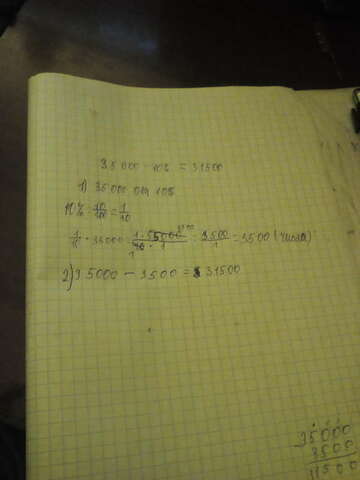 35 000 - 10% = 31500
1) 35 000 от 10%
10% 10/100 = 1/10
1/10 · 35000 = 1 · 35000 3500 / 10 · 1 1 = 3500/1 = 3500 (числа)
2) 35000 - 3500 = 31500
35000
3500
31500